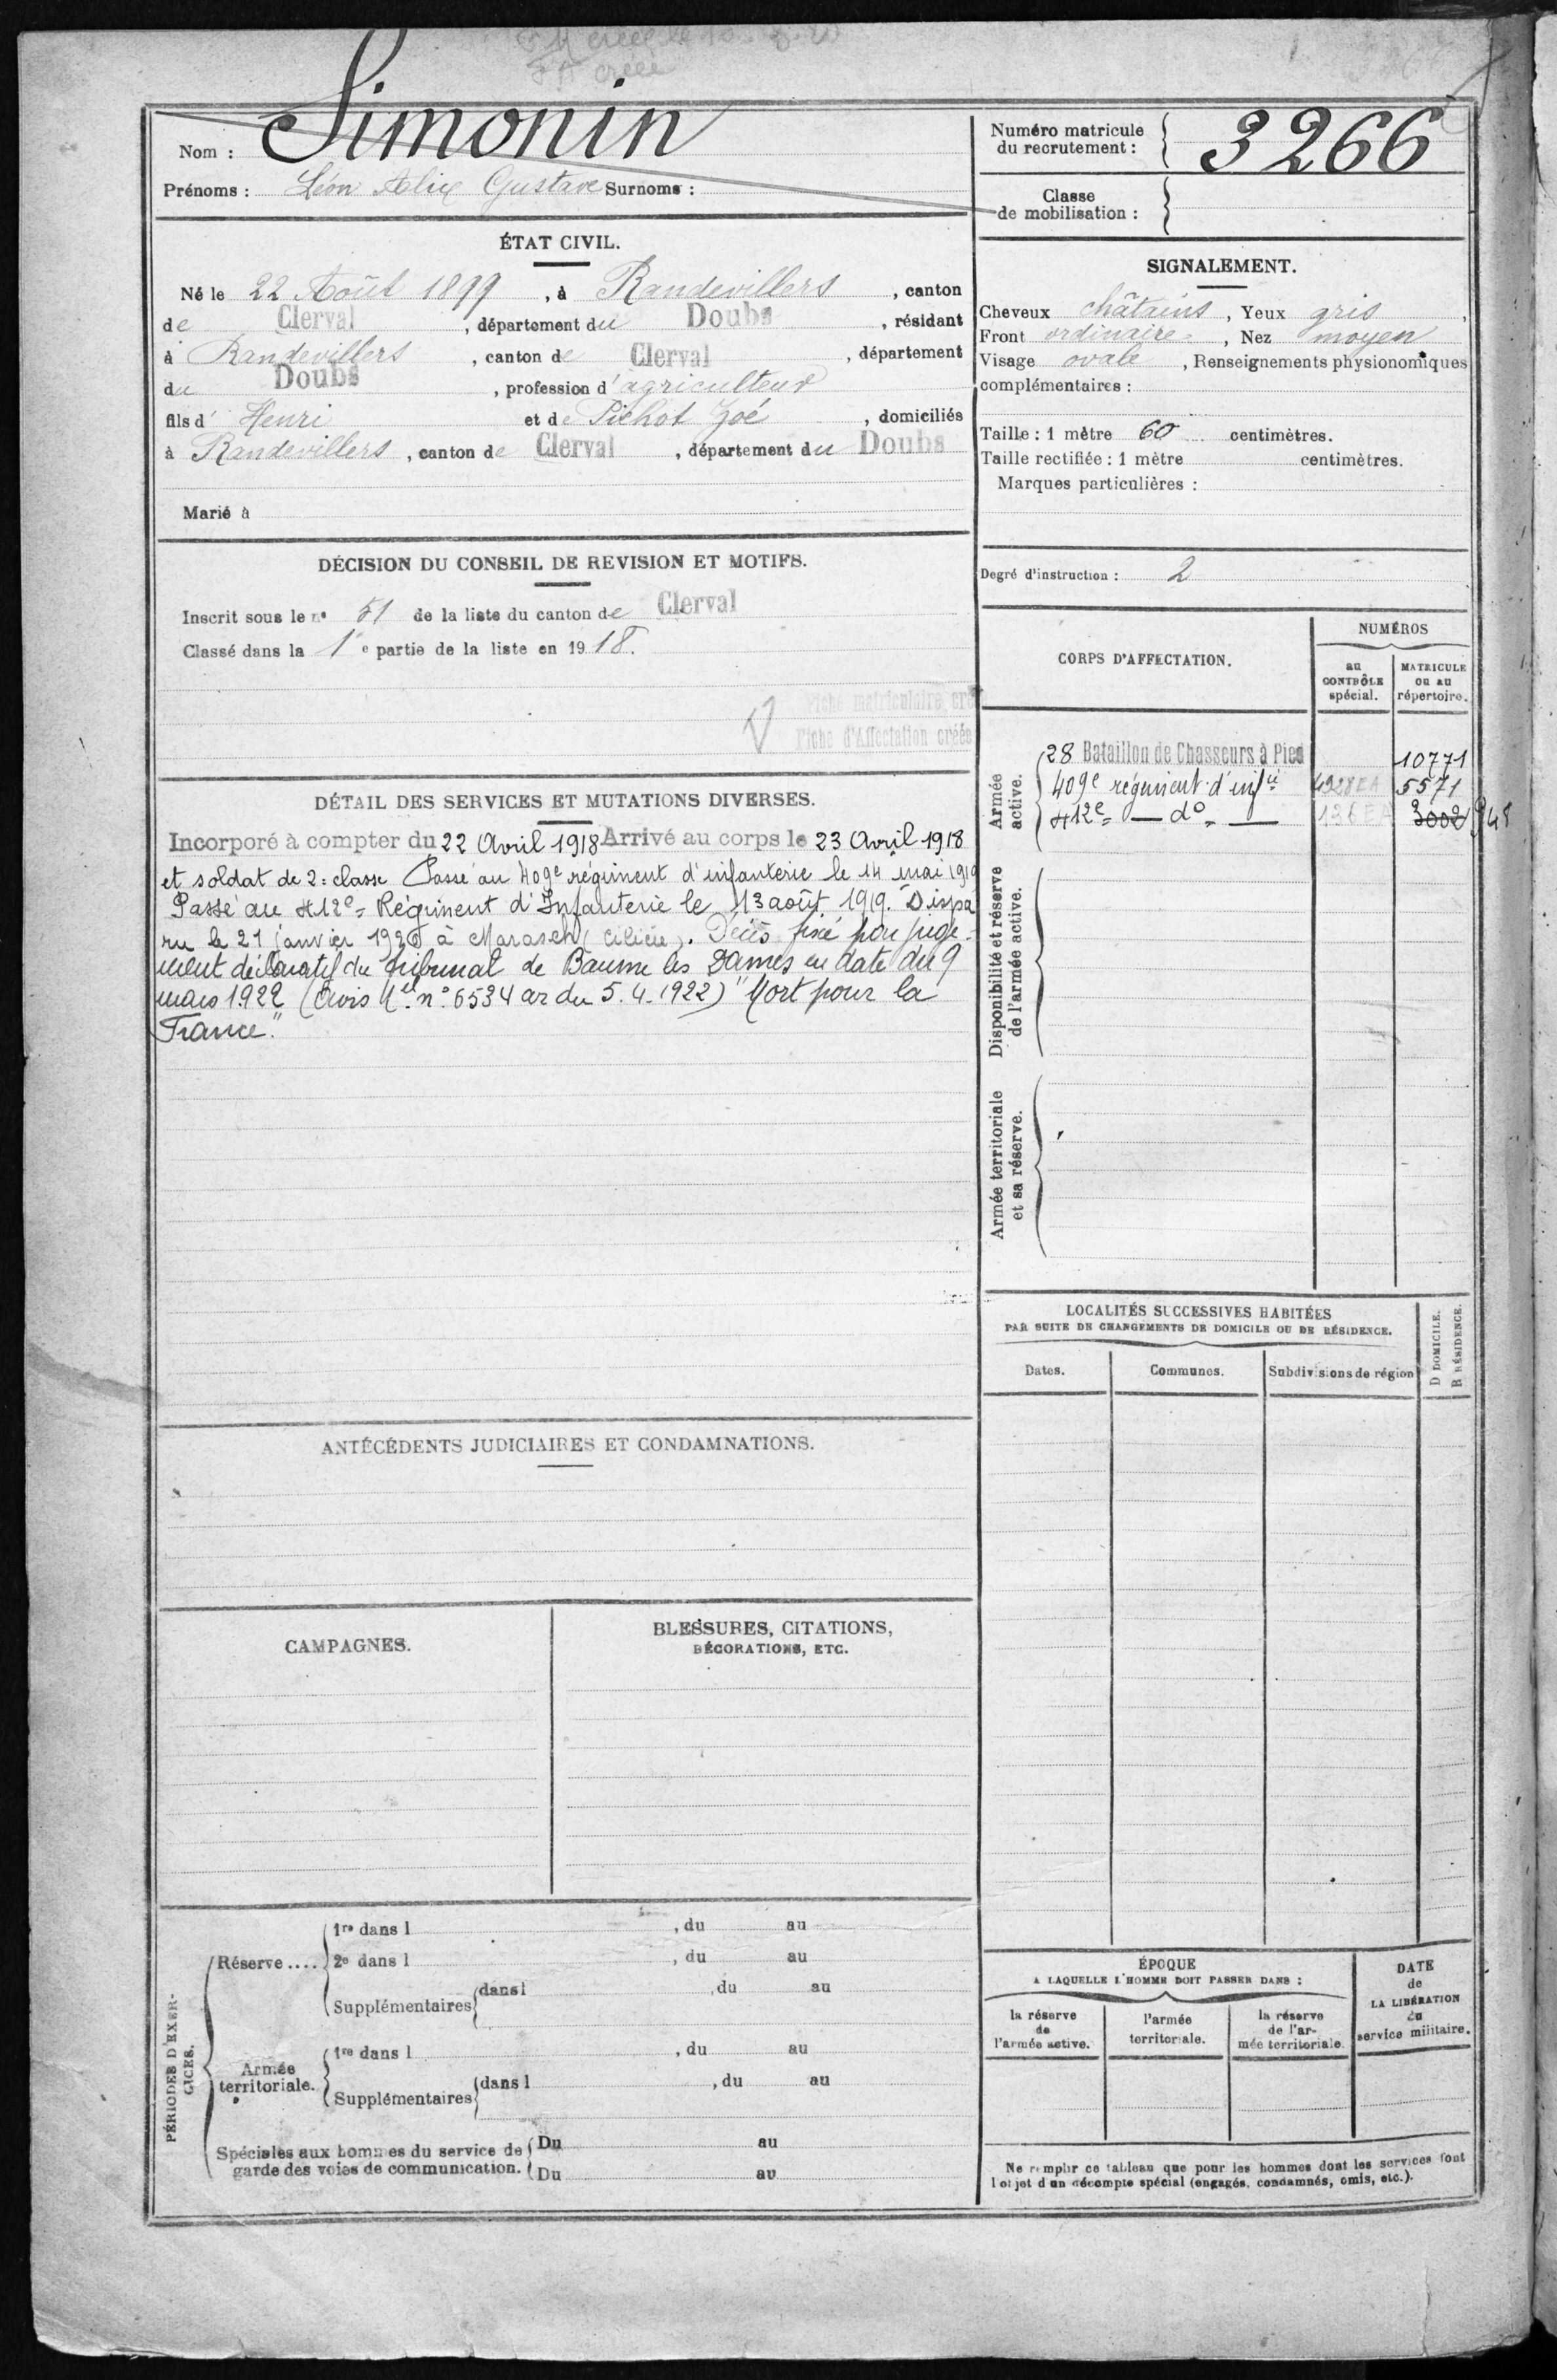 Nom : Simonin
Prénoms : Léon Alix Gustave Surnoms :
ÉTAT CIVIL.
Né le 22 Août 1899, à Randevillers, canton
de Clerval, département du Doubs, résidant
à Randevillers, canton de Clerval, département
du Doubs, profession d'agriculteur
fils d' Henri et de Pichot Zoé, domiciliés
à Randevillers, canton de Clerval, département du Doubs
Marié à
DÉCISION DU CONSEIL DE REVISION ET MOTIFS.
Inscrit sous le n° 51 de la liste du canton de Clerval
Classé dans la 1e partie de la liste en 1918.
Fiche matriculaire créée
Fiche d'Affectation créée
DÉTAIL DES SERVICES ET MUTATIONS DIVERSES.
Incorporé à compter du 22 Avril 1918 Arrivé au corps le 23 Avril 1918
et soldat de 2e classe Passé au 409e régiment d'infanterie le 14 mai 1919
Passé au 412e Régiment d'Infanterie le 13 août 1919. Dispa
ru le 21 janvier 1920 à Marasch (Cilicie). Décès fixé par juge-
ment déclaratif du tribunal de Baume les Dames en date du 9
mars 1922 (Avis Mel n° 6534 ar du 5.4.1922) "Mort pour la
France."
ANTÉCÉDENTS JUDICIAIRES ET CONDAMNATIONS.
CAMPAGNES.
BLESSURES, CITATIONS,
DÉCORATIONS, ETC.
PÉRIODES D'EXER-
CICES.
Réserve....
1re dans l , du au
2e dans l , du au
Supplémentaires dans l , du au
Armée
territoriale.
1re dans l , du au
Supplémentaires dans l , du au
Spéciales aux hommes du service de
garde des voies de communication.
Du au
Du au
Numéro matricule
du recrutement : 3266
Classe
de mobilisation :
SIGNALEMENT.
Cheveux châtains, Yeux gris,
Front ordinaire, Nez moyen
Visage ovale, Renseignements physionomiques
complémentaires :
Taille : 1 mètre 60 centimètres.
Taille rectifiée : 1 mètre centimètres.
Marques particulières :
Degré d'instruction : 2
CORPS D'AFFECTATION.
NUMÉROS
au
CONTRÔLE
spécial.
MATRICULE
ou au
répertoire.
Armée
active.
28 Bataillon de Chasseurs à Pied 10771
409e régiment d'infie 5571
412e — do — 136 EA 3002 948
Disponibilité et réserve
de l'armée active.
Armée territoriale
et sa réserve.
LOCALITÉS SUCCESSIVES HABITÉES
PAR SUITE DE CHANGEMENTS DE DOMICILE OU DE RÉSIDENCE.
D DOMICILE.
R RÉSIDENCE.
Dates. Communes. Subdivisions de région
ÉPOQUE
A LAQUELLE L'HOMME DOIT PASSER DANS :
la réserve
de
l'armée active.
l'armée
territoriale.
la réserve
de l'ar-
mée territoriale.
DATE
de
LA LIBÉRATION
du
service militaire.
Ne remplir ce tableau que pour les hommes dont les services font
l'objet d'un décompte spécial (engagés, condamnés, omis, etc.).